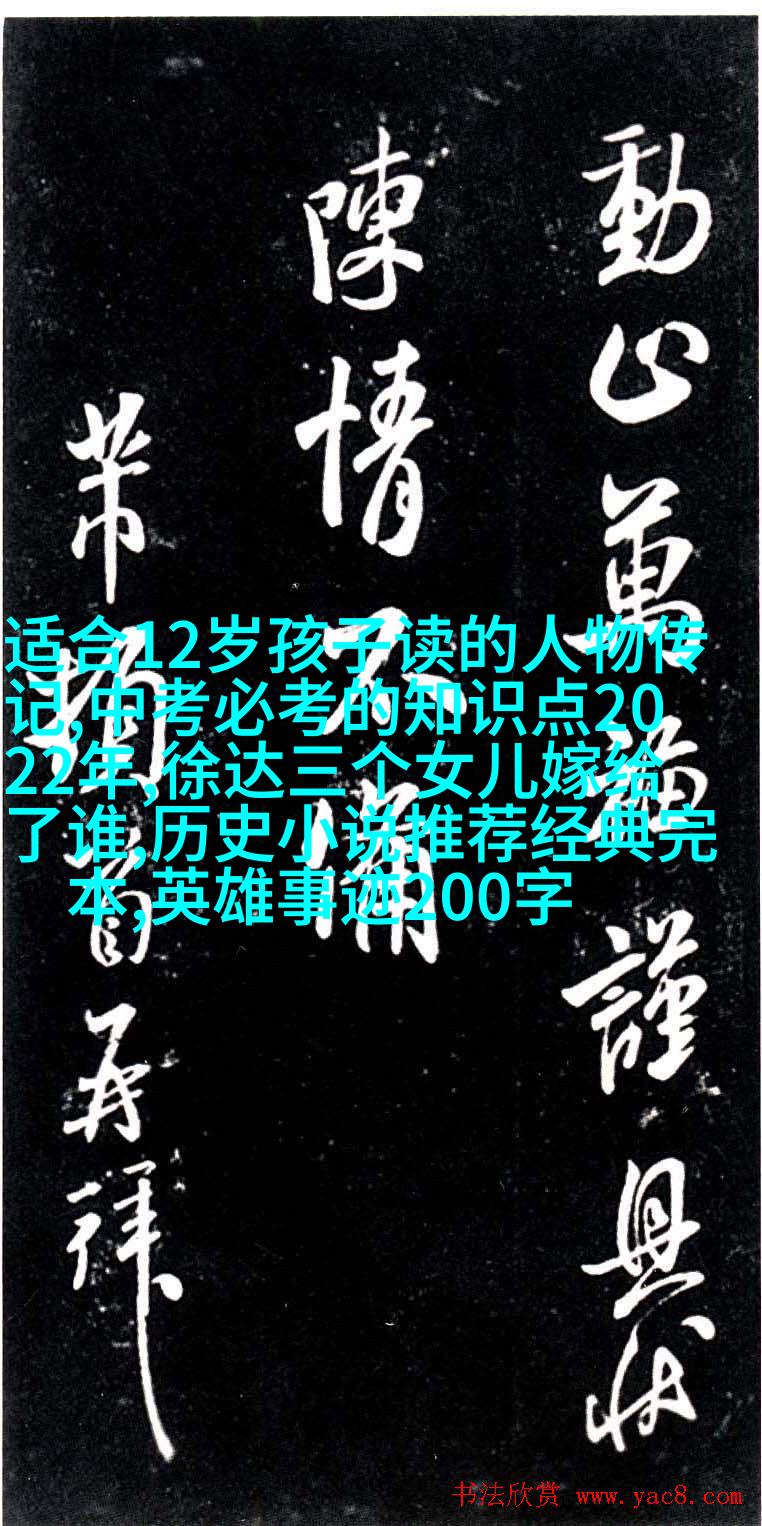 動止萬福謹具狀
陳情不備
芾頓首再拜
适合12岁孩子读的人物传
记,中考必考的知识点20
22年,徐达三个女儿嫁给
了谁,历史小说推荐经典完
本,英雄事迹200字
书法欣赏 www.yac8.com